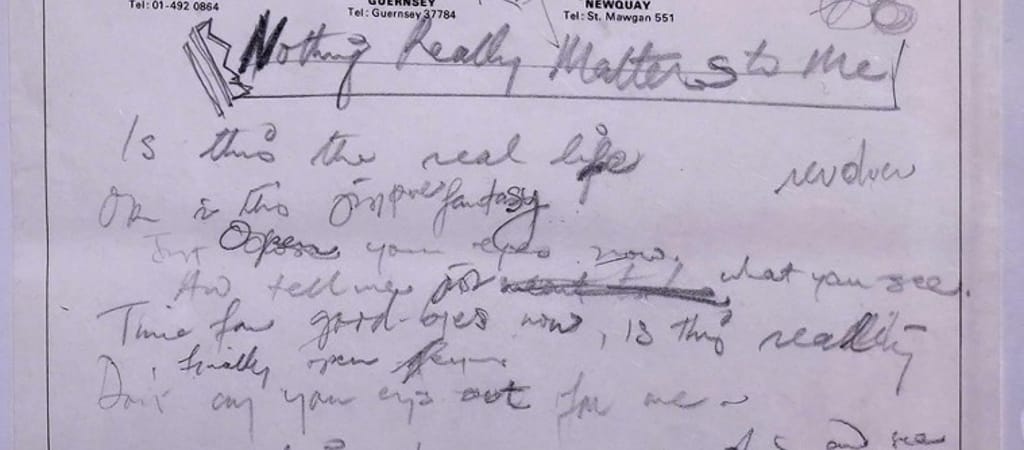 GUERNSEY NEWQUAY
Tel: 01-492 0864 Tel: Guernsey 37784 Tel: St. Mawgan 551
Nothing Really Matters to Me
Is this the real life
revolver
Or is this just pure fantasy
Just Open your eyes now.
And tell me just what you see.
Time for good-byes now, is this reality
finally open
Don't cry your eyes out for me
and see